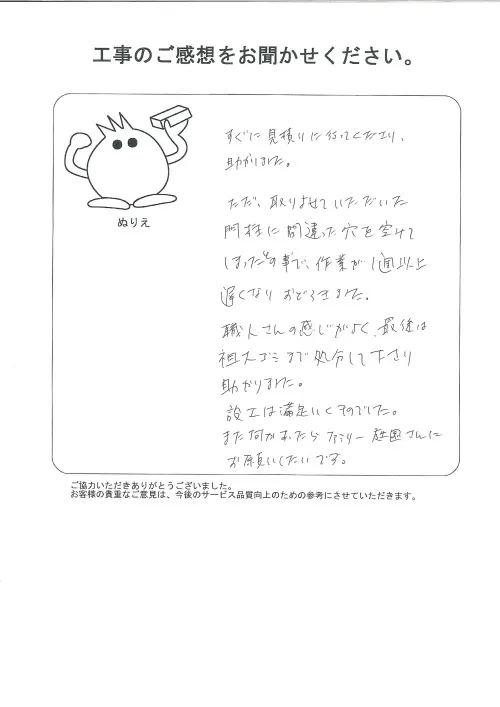 工事のご感想をお聞かせください。
ぬりえ
すぐに見積りに行ってくださり、
助かりました。
ただ、取りよせていただいた
門柱に間違った穴を空けて
しまったとの事で、作業が1週間以上
遅くなりおどろきました。
職人さんの感じがよく、最後は
祖大ゴミまで処分して下さり
助かりました。
設工は満足いくものでした。
また何かあったらファミリー庭園さんに
お願いしたいです。
ご協力いただきありがとうございました。
お客様の貴重なご意見は、今後のサービス品質向上のための参考にさせていただきます。